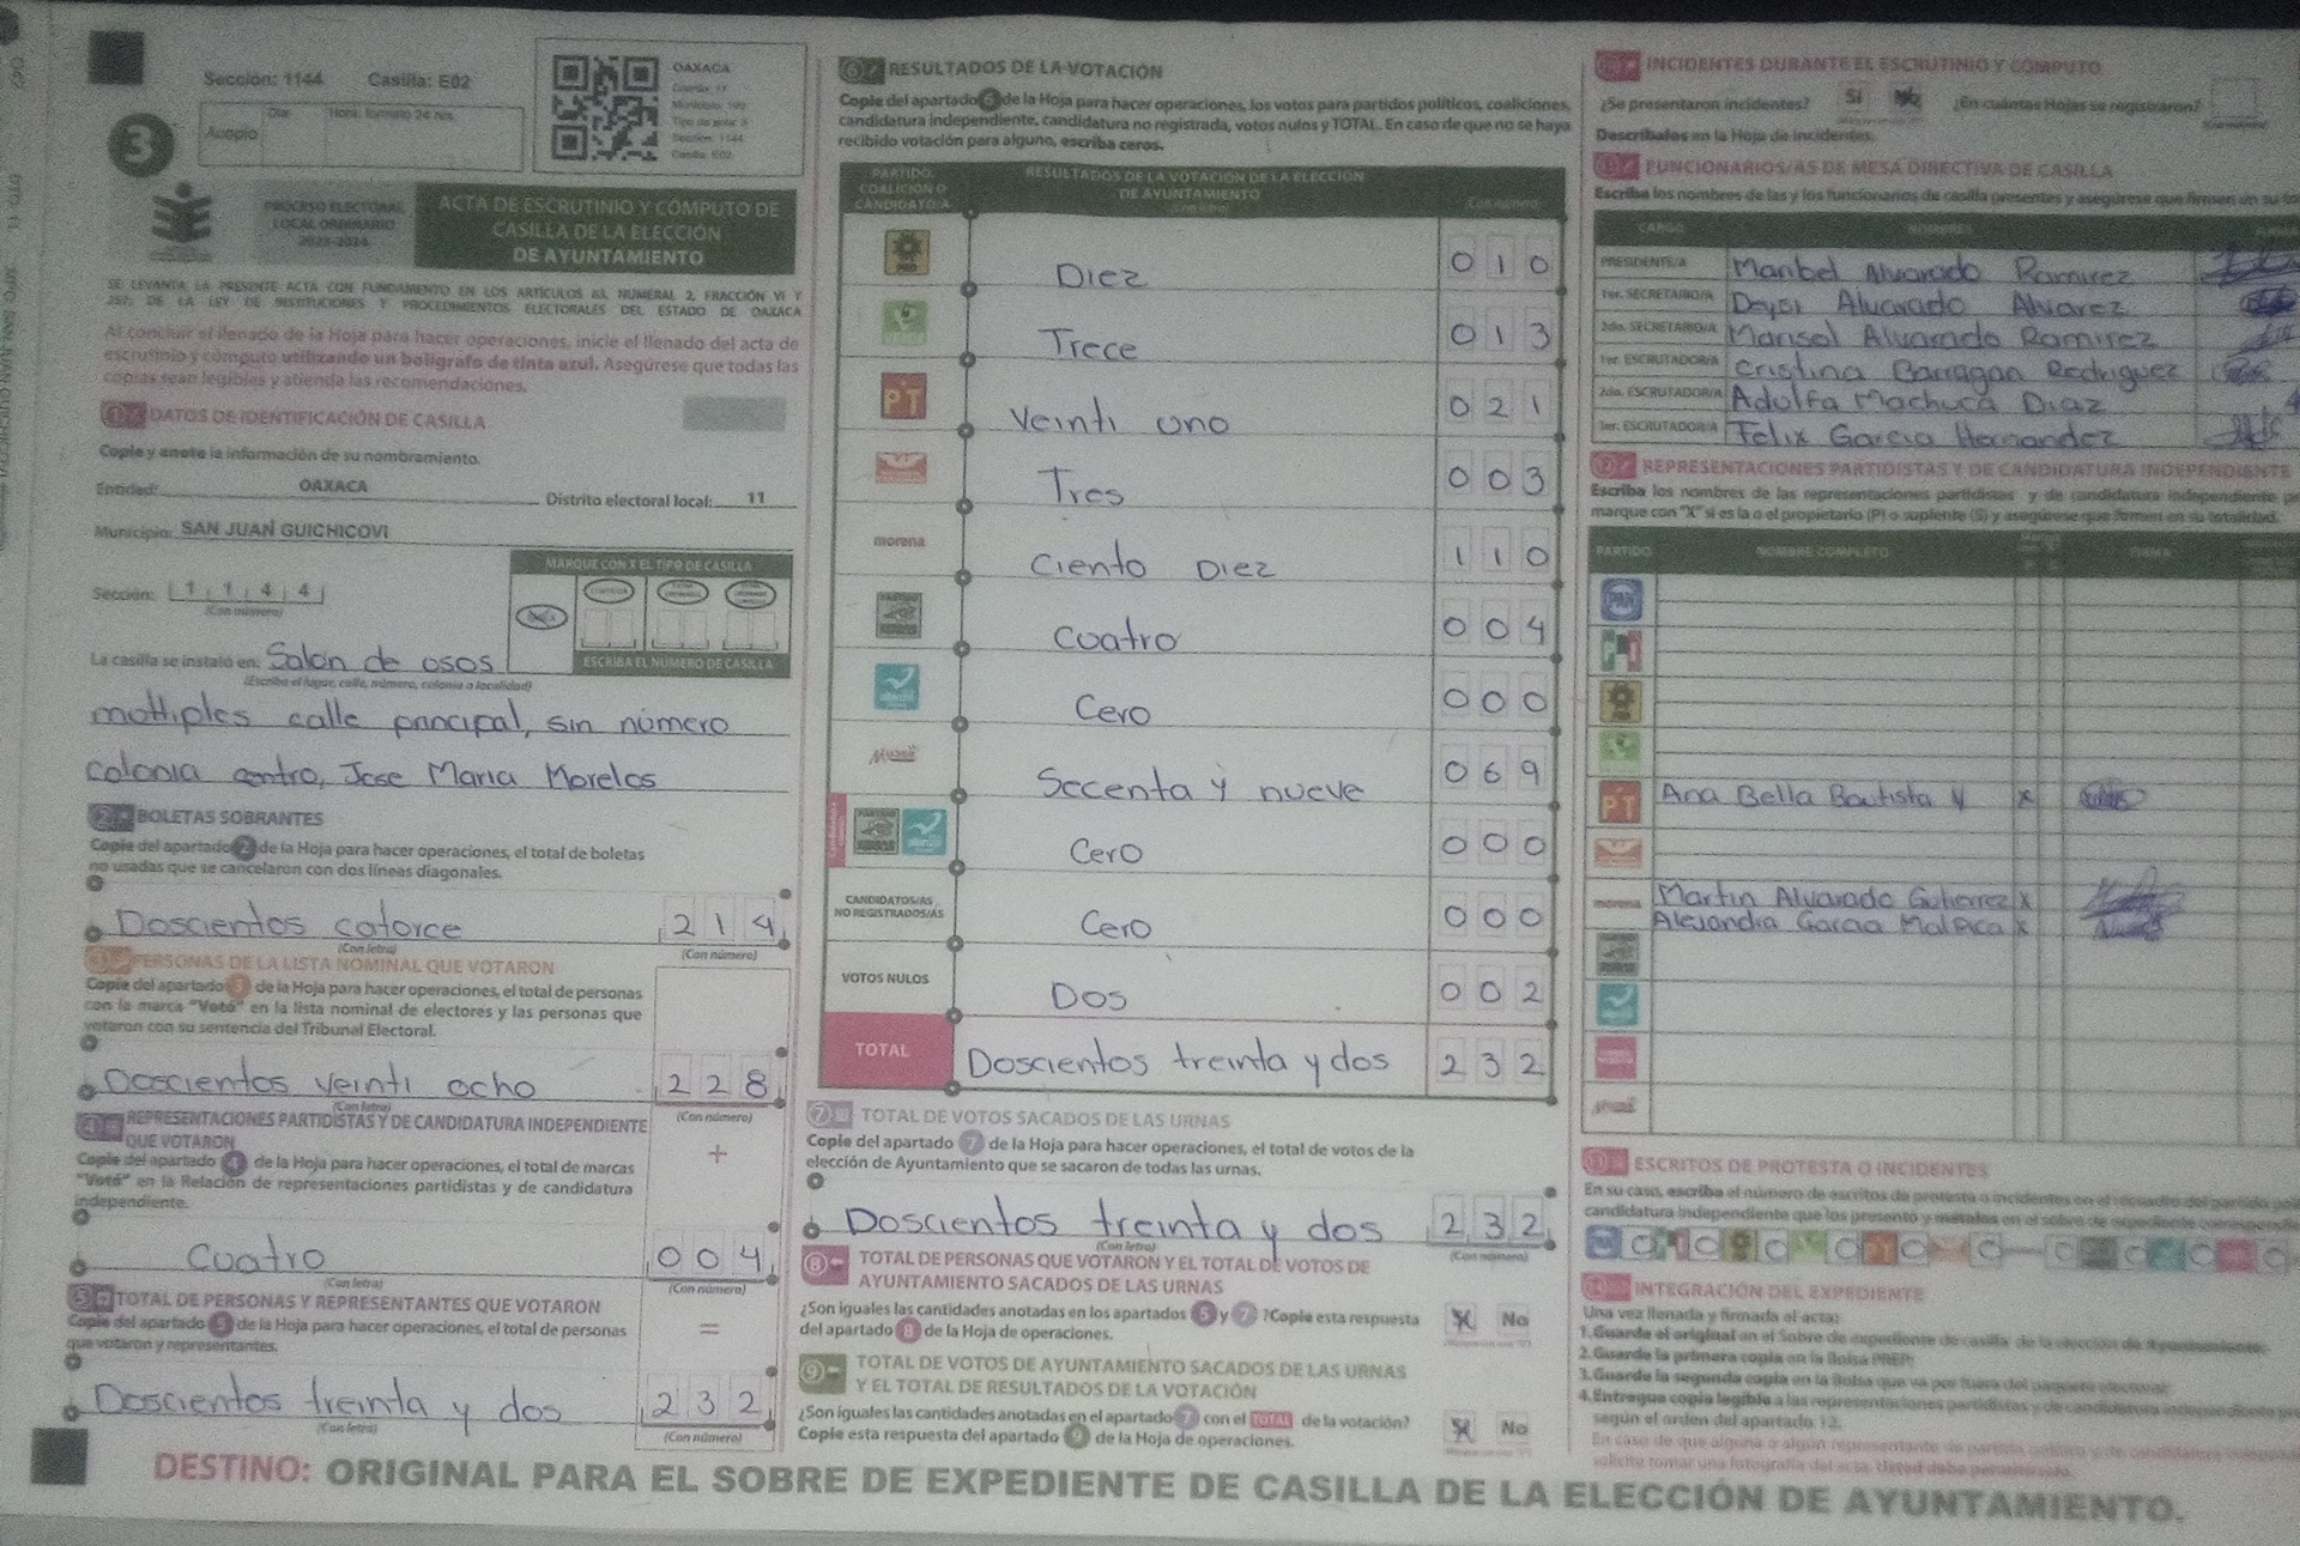 Sección: 1144 Casilla: E02
OAXACA
Día Hora, formato 24 hrs
Acopio
3
PROCESO ELECTORAL
LOCAL ORDINARIO
2023-2024
ACTA DE ESCRUTINIO Y CÓMPUTO DE
CASILLA DE LA ELECCIÓN
DE AYUNTAMIENTO
SE LEVANTA LA PRESENTE ACTA CON FUNDAMENTO EN LOS ARTÍCULOS
DE LA LEY DE INSTITUCIONES Y PROCEDIMIENTOS ELECTORALES DEL ESTADO DE OAXACA
Al concluir el llenado de la Hoja para hacer operaciones, inicie el llenado del acta de
escrutinio y cómputo utilizando un bolígrafo de tinta azul. Asegúrese que todas las
copias sean legibles y atienda las recomendaciones.
1 DATOS DE IDENTIFICACIÓN DE CASILLA
Copie y anote la información de su nombramiento.
Entidad: OAXACA Distrito electoral local: 11
Municipio: SAN JUAN GUICHICOVI
Sección: 1 1 4 4
(Con número)
MARQUE CON X EL TIPO DE CASILLA
ESCRIBA EL NÚMERO DE CASILLA
La casilla se instaló en: Salon de osos
(Escriba el lugar, calle, número, colonia o localidad)
moltiples calle principal, sin número
colonia centro, Jose Maria Morelos
2 BOLETAS SOBRANTES
Copie del apartado 2 de la Hoja para hacer operaciones, el total de boletas
no usadas que se cancelaron con dos líneas diagonales.
Doscientos catorce 2 1 4
(Con letra) (Con número)
3 PERSONAS DE LA LISTA NOMINAL QUE VOTARON
Copie del apartado 3 de la Hoja para hacer operaciones, el total de personas
con la marca "Votó" en la lista nominal de electores y las personas que
votaron con su sentencia del Tribunal Electoral.
Doscientos veinti ocho 2 2 8
(Con letra) (Con número)
4 REPRESENTACIONES PARTIDISTAS Y DE CANDIDATURA INDEPENDIENTE
QUE VOTARON
+
Copie del apartado 4 de la Hoja para hacer operaciones, el total de marcas
"Votó" en la Relación de representaciones partidistas y de candidatura
independiente.
Cuatro 0 0 4
(Con letra) (Con número)
5 TOTAL DE PERSONAS Y REPRESENTANTES QUE VOTARON
Copie del apartado 5 de la Hoja para hacer operaciones, el total de personas
que votaron y representantes.
=
Doscientos treinta y dos 2 3 2
(Con letra) (Con número)
6 RESULTADOS DE LA VOTACIÓN
Copie del apartado 6 de la Hoja para hacer operaciones, los votos para partidos políticos, coaliciones,
candidatura independiente, candidatura no registrada, votos nulos y TOTAL. En caso de que no se haya
recibido votación para alguno, escriba ceros.
PARTIDO, COALICIÓN O CANDIDATO/A
RESULTADOS DE LA VOTACIÓN DE LA ELECCIÓN
DE AYUNTAMIENTO
(Con letra) (Con número)
PRD Diez 0 1 0
Trece 0 1 3
PT Veinti uno 0 2 1
Tres 0 0 3
morena Ciento Diez 1 1 0
Cuatro 0 0 4
Cero 0 0 0
Secenta y nueve 0 6 9
Cero 0 0 0
CANDIDATOS/AS
NO REGISTRADOS/AS Cero 0 0 0
VOTOS NULOS Dos 0 0 2
TOTAL Doscientos treinta y dos 2 3 2
7 TOTAL DE VOTOS SACADOS DE LAS URNAS
Copie del apartado 7 de la Hoja para hacer operaciones, el total de votos de la
elección de Ayuntamiento que se sacaron de todas las urnas.
Doscientos treinta y dos 2 3 2
(Con letra) (Con número)
8 TOTAL DE PERSONAS QUE VOTARON Y EL TOTAL DE VOTOS DE
AYUNTAMIENTO SACADOS DE LAS URNAS
¿Son iguales las cantidades anotadas en los apartados 5 y 7 ? Copie esta respuesta
del apartado 8 de la Hoja de operaciones.
No
9 TOTAL DE VOTOS DE AYUNTAMIENTO SACADOS DE LAS URNAS
Y EL TOTAL DE RESULTADOS DE LA VOTACIÓN
¿Son iguales las cantidades anotadas en el apartado 7 con el TOTAL de la votación?
Copie esta respuesta del apartado 9 de la Hoja de operaciones.
No
INCIDENTES DURANTE EL ESCRUTINIO Y CÓMPUTO
¿Se presentaron incidentes? Sí No ¿En cuántas Hojas se registraron?
Descríbalos en la Hoja de incidentes.
FUNCIONARIOS/AS DE MESA DIRECTIVA DE CASILLA
Escriba los nombres de las y los funcionarios de casilla presentes y asegúrese que firmen en su
CARGO NOMBRES
PRESIDENTE/A Maribel Alvarado Ramirez
1er. SECRETARIO/A Deysi Alvarado Alvarez
2do. SECRETARIO/A Marisol Alvarado Ramirez
1er. ESCRUTADOR/A Cristina Barragan Rodriguez
2do. ESCRUTADOR/A Adolfa Machuca Diaz
3er. ESCRUTADOR/A Felix Garcia Hernandez
12 REPRESENTACIONES PARTIDISTAS Y DE CANDIDATURA INDEPENDIENTE
Escriba los nombres de las representaciones partidistas y de candidatura independiente
marque con "X" si es la o el propietario (P) o suplente (S) y asegúrese que firmen en su totalidad.
PARTIDO NOMBRE COMPLETO FIRMA
PAN
PT Ana Bella Bautista V x
morena Martin Alvarado Gutierrez x
Alejandra Garcia Malpica x
13 ESCRITOS DE PROTESTA O INCIDENTES
En su caso, escriba el número de escritos de protesta o incidentes en el recuadro del partido
candidatura independiente que los presentó y métalos en el sobre de expediente
14 INTEGRACIÓN DEL EXPEDIENTE
Una vez llenada y firmada el acta:
1. Guarde el original en el Sobre de expediente de casilla de la elección de Ayuntamiento.
2. Guarde la primera copia en la Bolsa PREP.
3. Guarde la segunda copia en la Bolsa que va por fuera del paquete electoral.
4. Entregue copia legible a las representaciones partidistas y de candidatura independiente
según el orden del apartado 12.
DESTINO: ORIGINAL PARA EL SOBRE DE EXPEDIENTE DE CASILLA DE LA ELECCIÓN DE AYUNTAMIENTO.